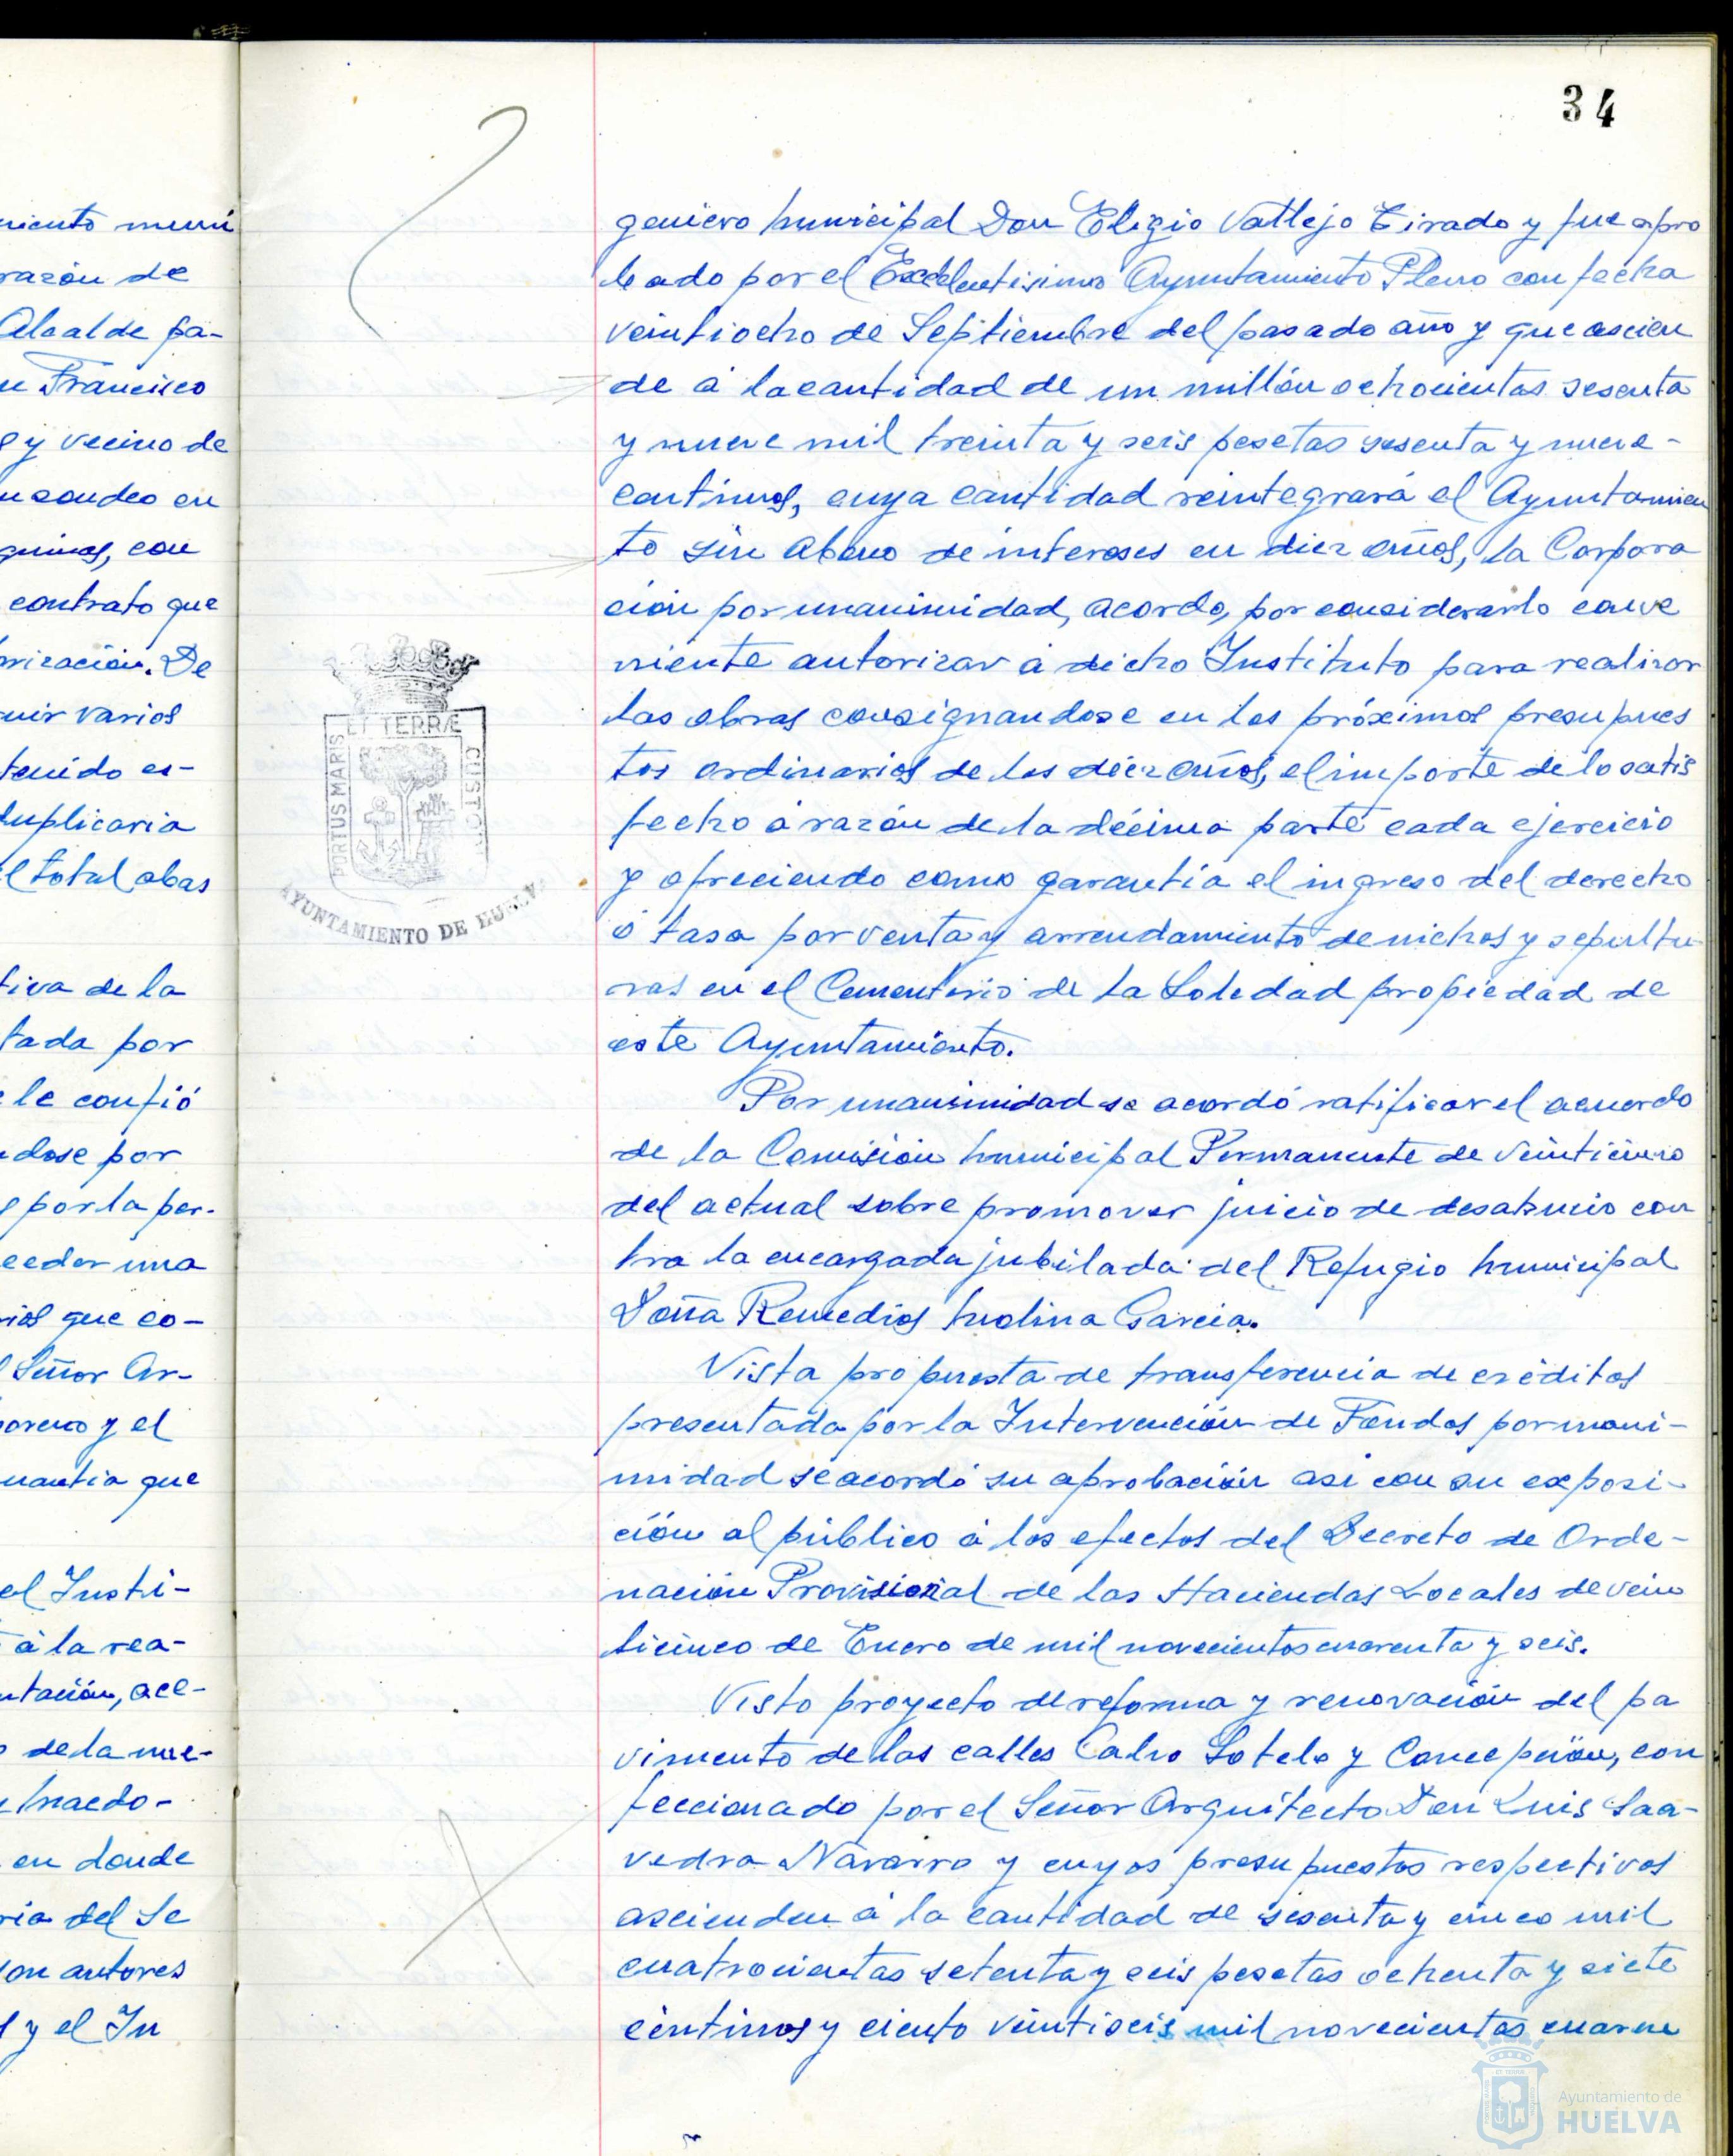 34
niento muni
razón de
Alcalde pa-
n Francisco
y vecino de
n sondeo en
quinas, con
contrato que
rización. De
uir varios
tenido es-
duplicaria
el total abas
tiva de la
tada por
le confió
ndose por
por la per-
ceder una
rios que co-
Señor Ar-
oreno y el
uantia que
el Insti-
á la rea-
ntación, ace-
de la nue-
Macdo-
en donde
ria del Se
on autores
y el In
geniero municipal Don Eligio Vallejo Tirado y fue apro
bado por el Excelentisimo Ayuntamiento Pleno con fecha
veintiocho de Septiembre del pasado año y que ascien
de á la cantidad de un millón ochocientas sesenta
y nueve mil treinta y seis pesetas sesenta y nueve-
centimos, cuya cantidad reintegrará el Ayuntamien
to sin abono de intereses en diez años, la Corpora
ción por unanimidad, acordo, por considerarlo conve
niente autorizar á dicho Instituto para realizar
las obras consignandose en los próximos presupues
tos ordinarios de los diez años, el importe de lo satis
fecho á razón de la décima parte cada ejercicio
y ofreciendo como garantía el ingreso del derecho
ó tasa por venta y arrendamiento de nichos y sepultu-
ras en el Cementerio de la Soledad propiedad de
este Ayuntamiento.
Por unanimidad se acordó ratificar el acuerdo
de la Comisión Municipal Permanente de veinticinco
del actual sobre promover juicio de desahucio con
tra la encargada jubilada del Refugio Municipal
Doña Remedios Molina Garcia.
Vista propuesta de transferencia de créditos
presentada por la Intervención de Fondos por unani-
midad se acordó su aprobación asi con su exposi-
ción al público á los efectos del Decreto de Orde-
nación Provisional de las Haciendas Locales de vein
ticinco de Enero de mil novecientos cuarenta y seis.
Visto proyecto de reforma y renovación del pa
vimento de las calles Calvo Sotelo y Concepción, con
feccionado por el Señor Arquitecto Don Luis Saa-
vedra Navarro y cuyos presupuestos respectivos
ascienden á la cantidad de sesenta y cinco mil
cuatrocientas setenta y seis pesetas ochenta y siete
céntimos y ciento veintiseis mil novecientas cuaren
PORTUS MARIS ET TERRÆ CUSTOD
AYUNTAMIENTO DE HUELVA
Ayuntamiento de
HUELVA